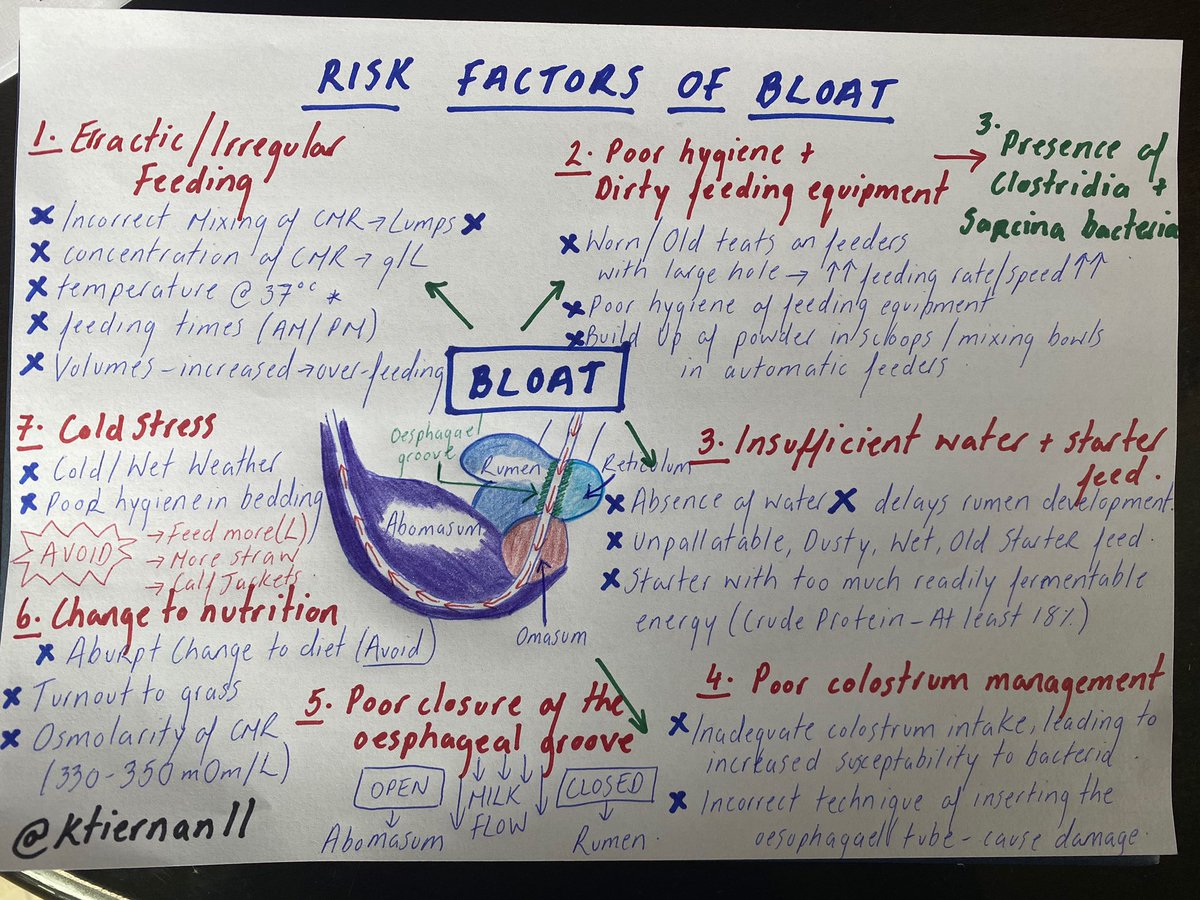 RISK FACTORS OF BLOAT
1. Erractic/Irregular
Feeding
✖ Incorrect Mixing of CMR → Lumps ✖
✖ concentration of CMR → g/L
✖ temperature @ 37°c *
✖ feeding times (AM/PM)
✖ Volumes - increased → over-feeding
2. Poor hygiene +
Dirty feeding equipment →
✖ Worn/Old teats on feeders
with large hole → ↑↑ feeding rate/speed ↑↑
✖ Poor hygiene of feeding equipment
✖ Build Up of powder in/scoops/mixing bowls
in automatic feeders
3. Presence of
Clostridia +
Sarcina bacteria
BLOAT
Oesphagael
groove
Rumen
Reticulum
Abomasum
Omasum
3. Insufficient water + starter
feed.
✖ Absence of water ✖ delays rumen development.
✖ Unpallatable, Dusty, Wet, Old Starter feed.
✖ Starter with too much readily fermentable
energy (Crude Protein - At least 18%)
4. Poor colostrum management
✖ Inadequate colostrum intake, leading to
increased susceptability to bacteria.
✖ Incorrect technique of inserting the
oesuphagael tube - cause damage.
5. Poor closure of the
oesphageal groove
OPEN
MILK
FLOW
CLOSED
Abomasum
Rumen.
7. Cold Stress
✖ Cold/Wet Weather
✖ Poor hygiene in bedding
AVOID
→ Feed more (L)
→ More straw
→ Calf Jackets.
6. Change to nutrition
✖ Aburpt Change to diet (Avoid)
✖ Turnout to grass
✖ Osmolarity of CMR
(330-350 mOm/L)
@Ktiernan11